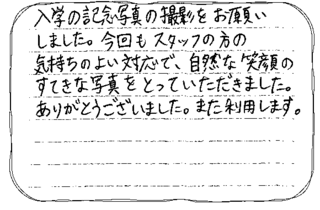 入学の記念写真の撮影をお願い
しました。今回もスタッフの方の
気持ちのよい対応で、自然な笑顔の
すてきな写真をとっていただきました。
ありがとうございました。また利用します。